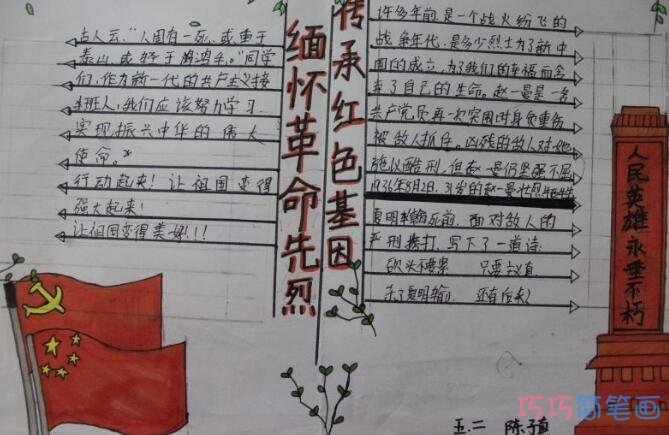 缅怀革命先烈
传承红色基因
古人云:“人固有一死,或重于
泰山,或轻于鸿毛。”同学
们,作为新一代的共产主义接
班人,我们应该努力学习,
实现振兴中华的伟大
使命。”
行动起来!让祖国变得
强大起来!
让祖国变得美好!!!
许多年前,是一个战火纷飞的
战争年代,是多少烈士为了新中
国的成立,为了我们的幸福而舍
弃了自己的生命。赵一曼是一名
共产党员,再一次突围时身负重伤
被敌人抓住。凶残的敌人对她
施以酷刑,但赵一曼仍坚强不屈
1936年8月2日,31岁的赵一曼壮烈牺牲
夏明翰死前,面对敌人的
严刑拷打,写下了一首诗:
砍头不要紧 只要主义真
杀了夏明翰 还有后来人
人民英雄永垂不朽
五.二 陈子
巧巧简笔画